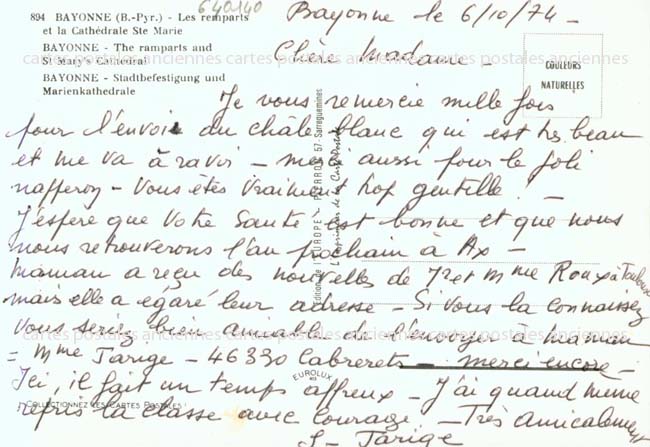 640140
894 BAYONNE (B.-Pyr.) - Les remparts
et la Cathédrale Ste Marie
BAYONNE - The ramparts and
St Mary's Cathedral
BAYONNE - Stadtbefestigung und
Marienkathedrale
COULEURS
NATURELLES
Bayonne le 6/10/74 -
Chère Madame -
Je vous remercie mille fois
pour l'envoi du châle blanc qui est très beau
et me va à ravir - merci aussi pour le joli
napperon - Vous êtes vraiment trop gentille.
J'espère que votre santé est bonne et que nous
nous retrouverons l'an prochain à Ax -
Maman a reçu des nouvelles de Mr et Mme Roux à Toulouse
mais elle a égaré leur adresse - Si vous la connaissez
vous seriez bien aimable de l'envoyer à maman
= Mme Tarige - 46330 Cabrerets - merci encore -
Ici, il fait un temps affreux - J'ai quand même
repris la classe avec courage. - Très amicalement
S- Tarige
Edition de l'EUROPE - PIERRON 57-Sarreguemines
EUROLUX
COLLECTIONNEZ LES CARTES POSTALES
cartes postales anciennes cartes postales anciennes